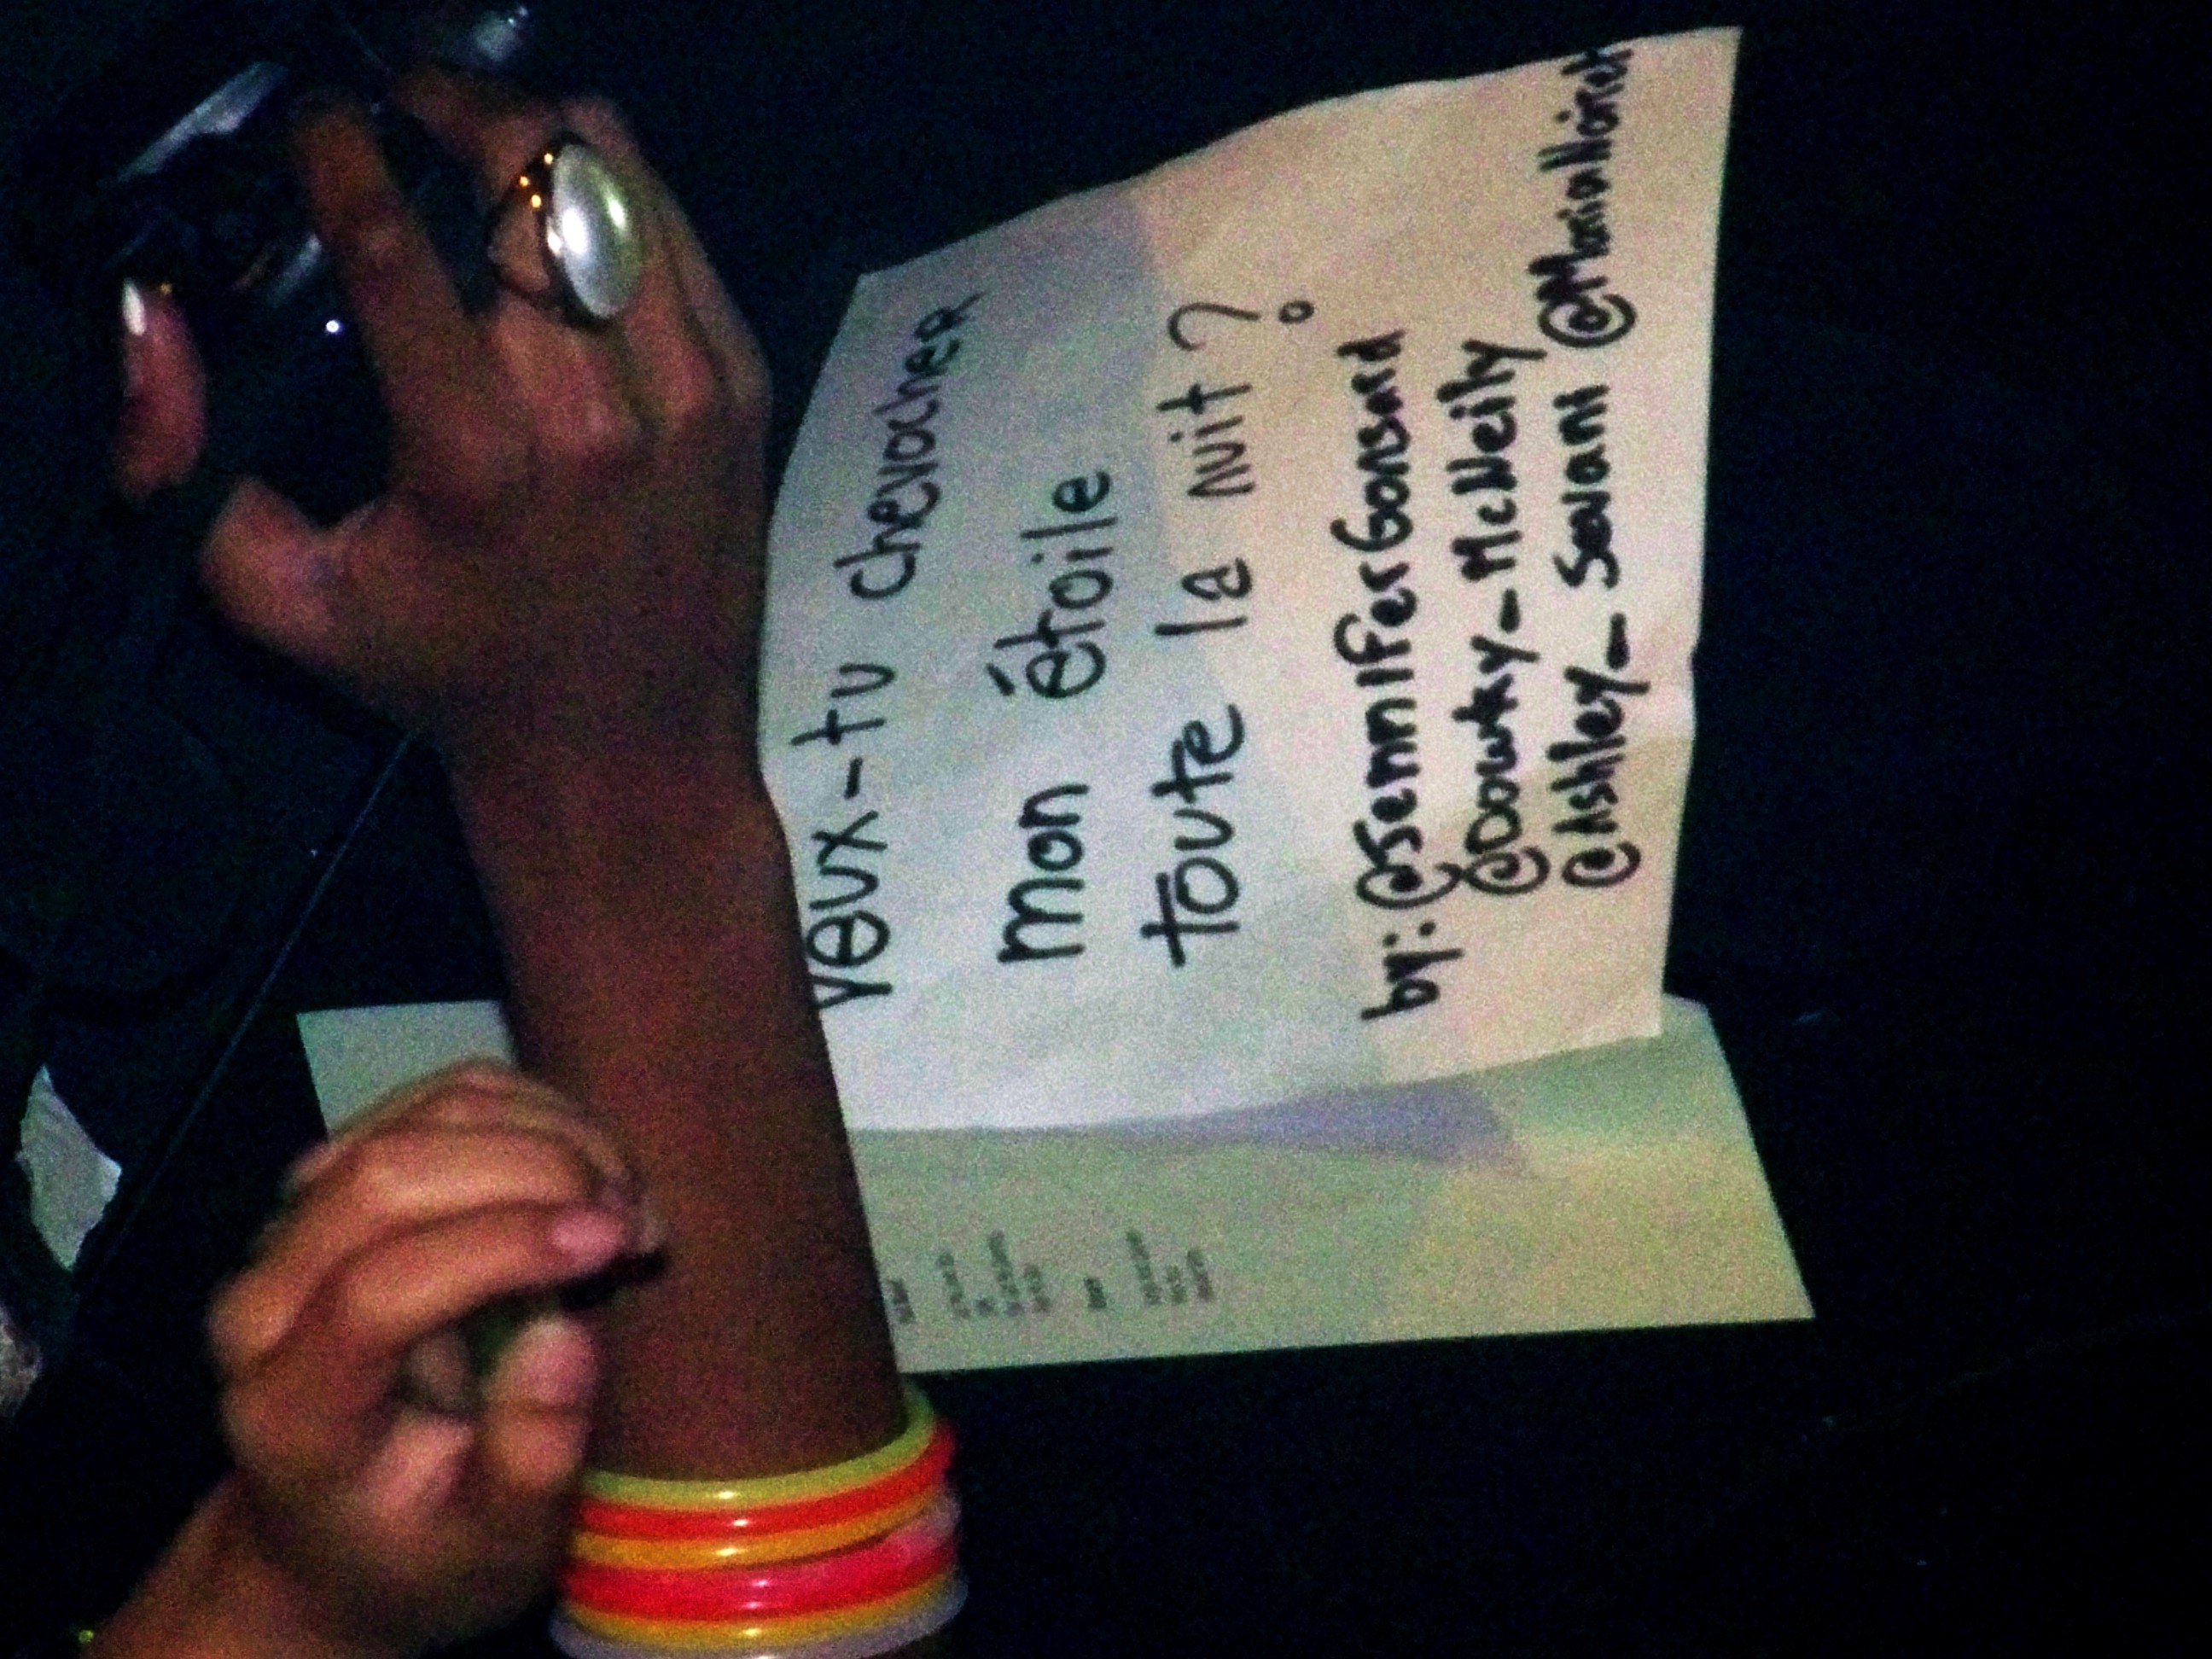 veux-tu chevocher
mon étoile
toute la nuit?
by: @JenniferGonsard
@Dowky-McNeily
@Ashley_Savani @MariaNoiret